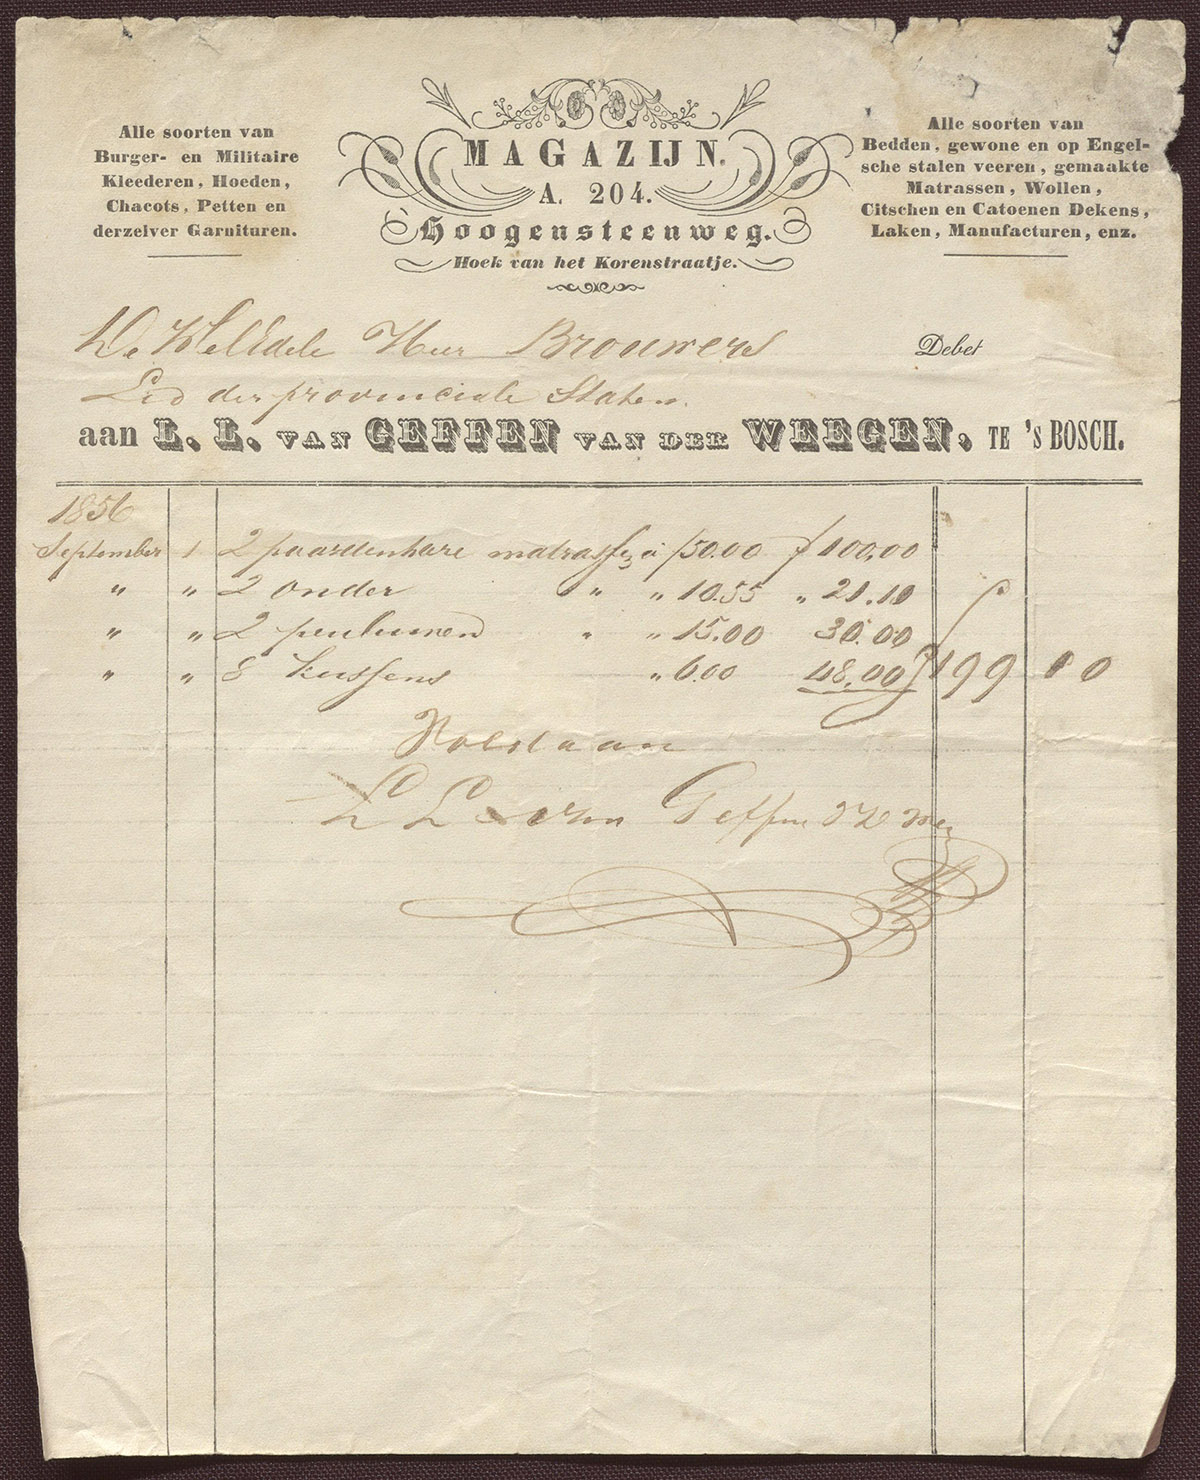 Alle soorten van
Burger- en Militaire
Kleederen, Hoeden,
Chacots, Petten en
derzelver Garnituren.
MAGAZIJN.
A. 204.
Hoogensteenweg.
Hoek van het Korenstraatje.
Alle soorten van
Bedden, gewone en op Engel-
sche stalen veeren, gemaakte
Matrassen, Wollen,
Citschen en Catoenen Dekens,
Laken, Manufacturen, enz.
De WelEdele Heer Brouwers
Debet
Lid der provinciale Staten
aan L. L. VAN GEFFEN VAN DER WEEGEN, TE 's BOSCH.
1856
September 1 2 paardenhare matrassen à f 50.00 f 100.00
" " 2 onder " " 10.55 " 21.10
" " 2 peuluwen " " 15.00 30.00
" " 8 kussens " 6.00 48.00 f 199 10
Voldaan
L L van Geffen